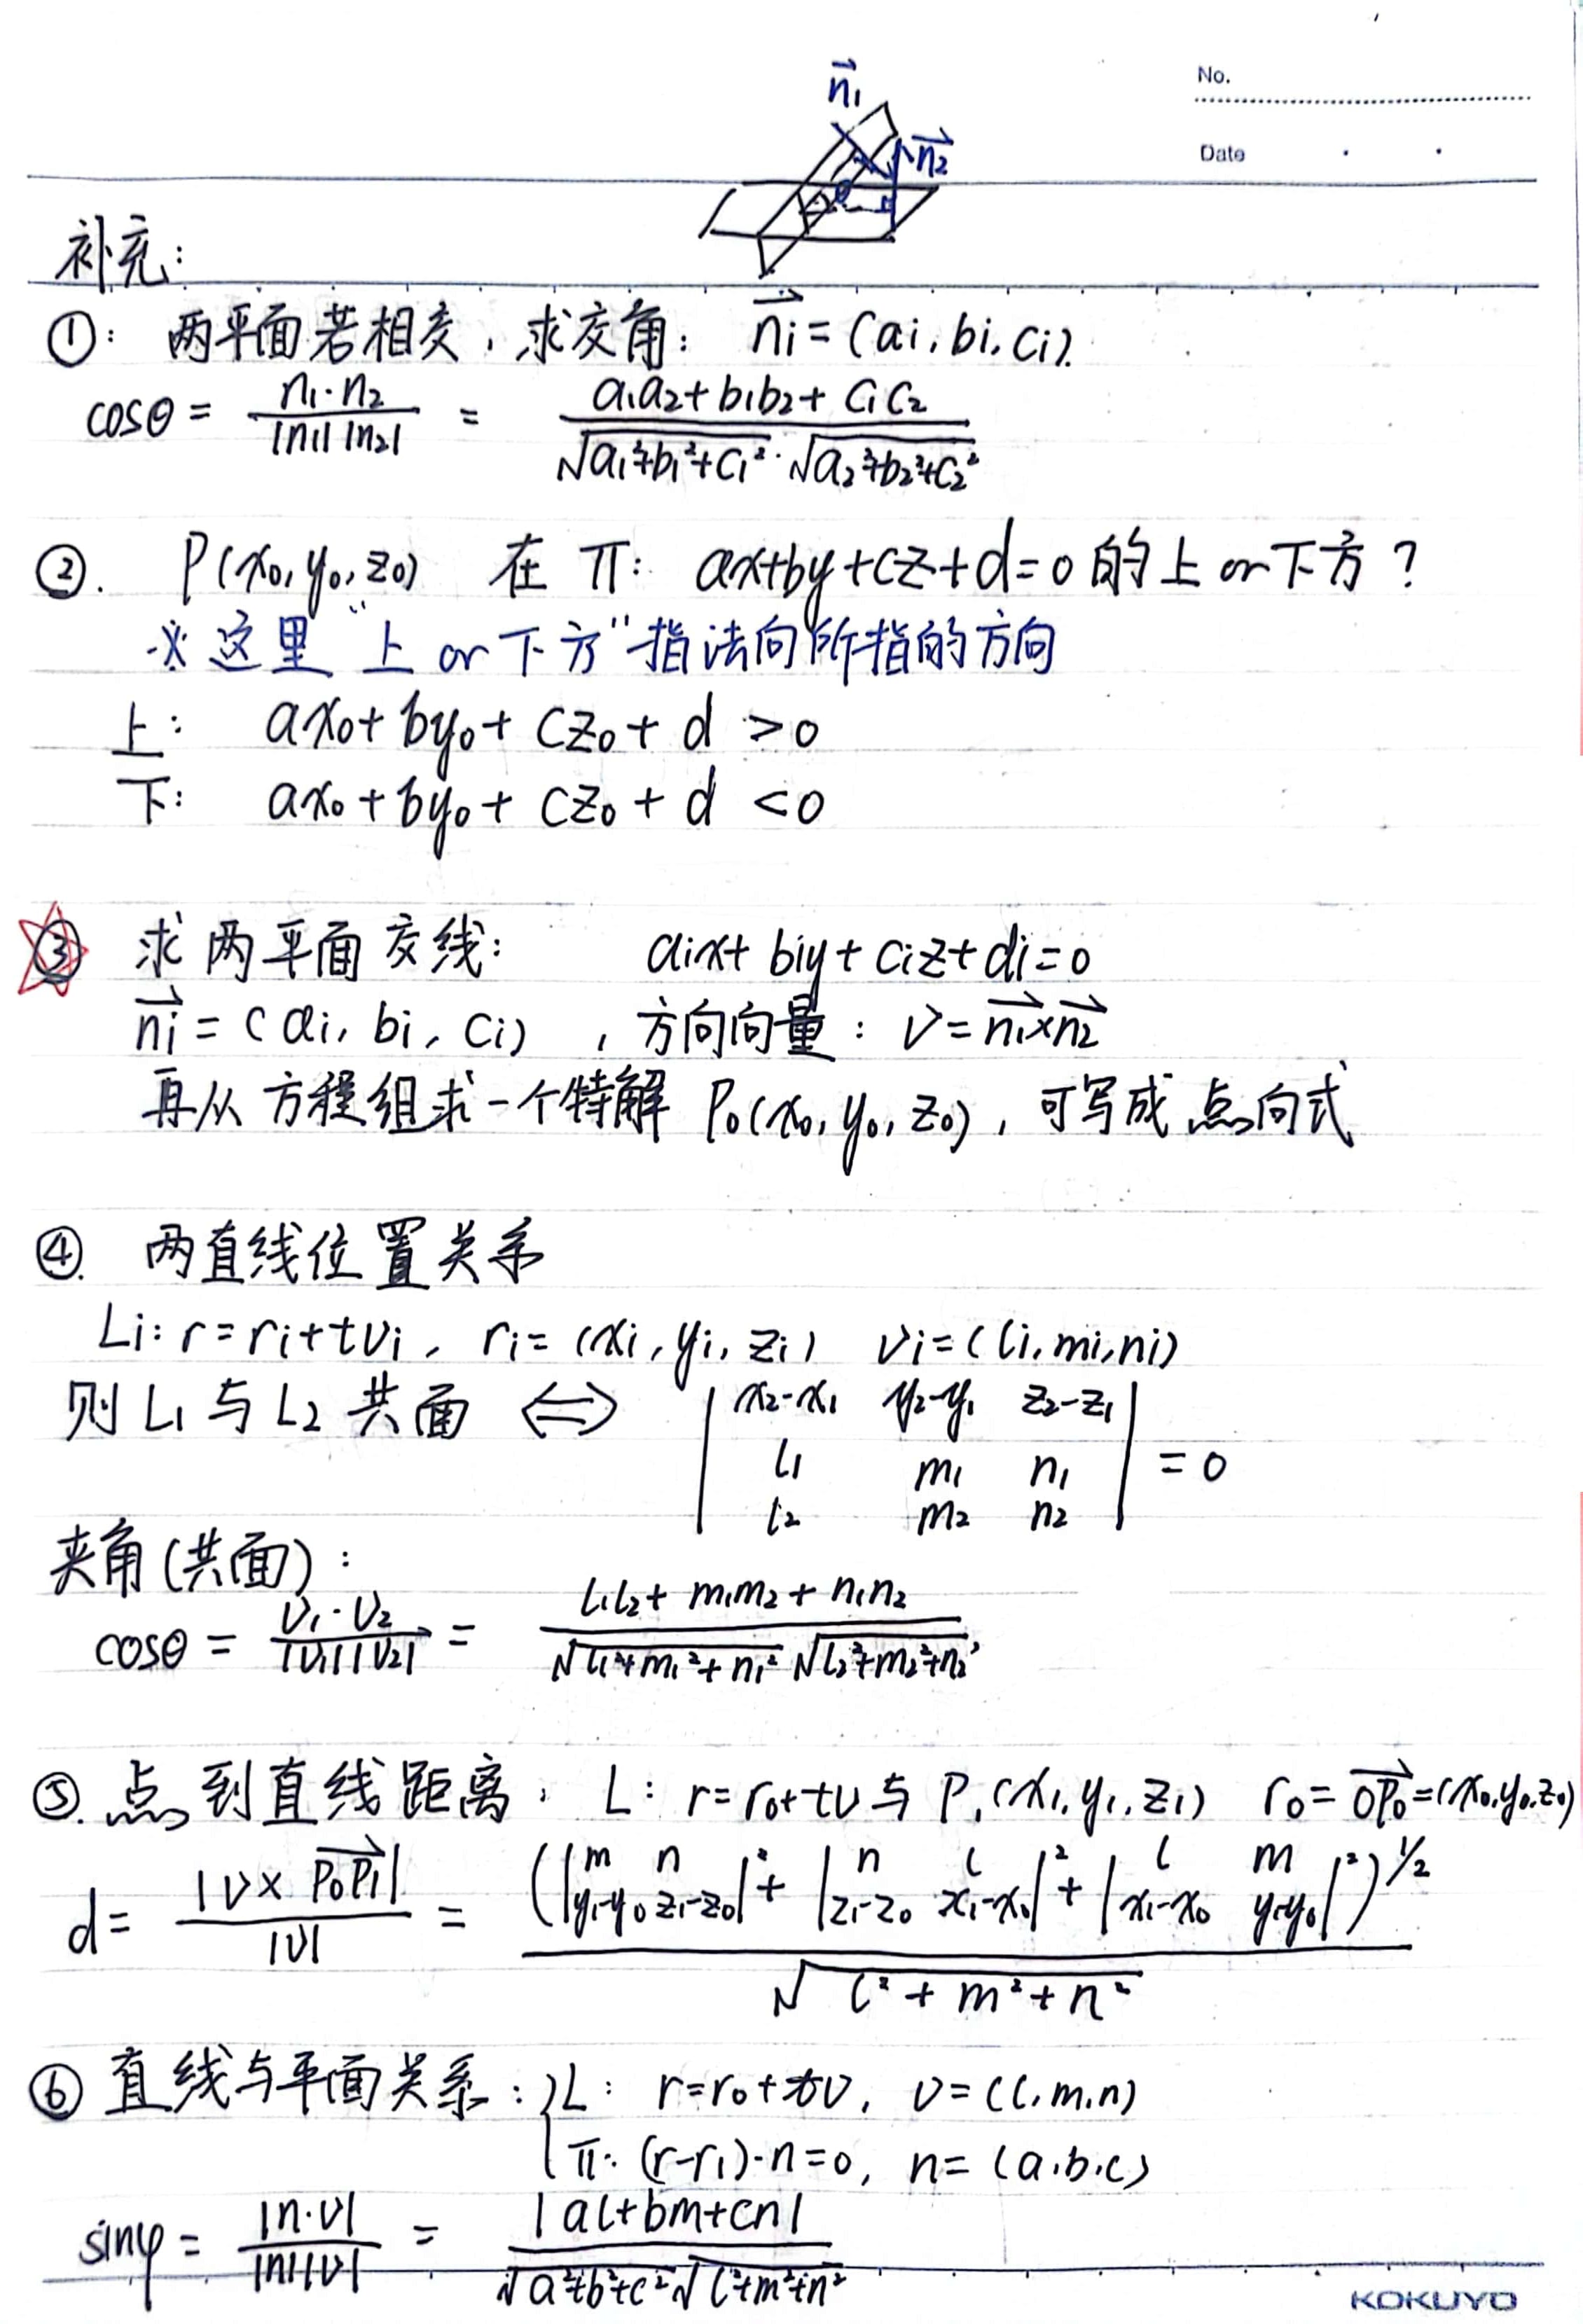 No.
Date
n⃗₁
n⃗₂
θ
补充:
①: 两平面若相交, 求交角: n⃗i = (ai, bi, ci).
cosθ = n₁·n₂ / |n₁||n₂| = a₁a₂+b₁b₂+c₁c₂ / √a₁²+b₁²+c₁² · √a₂²+b₂²+c₂²
②. P(x₀, y₀, z₀) 在 π: ax+by+cz+d=0 的上 or 下方?
※ 这里“上 or 下方”指法向所指的方向
上: ax₀+by₀+cz₀+d >0
下: ax₀+by₀+cz₀+d <0
③ 求两平面交线: aix+biy+ciz+di=0
n⃗i = (ai, bi, ci) , 方向向量: v = n⃗₁×n⃗₂
再从方程组求一个特解 P₀(x₀, y₀, z₀), 可写成点向式
④. 两直线位置关系
Li: r=ri+tvi, ri=(xi, yi, zi) vi=(li, mi, ni)
则 L₁ 与 L₂ 共面 ⟺ | x₂-x₁ y₂-y₁ z₂-z₁ |
| l₁ m₁ n₁ | = 0
| l₂ m₂ n₂ |
夹角(共面):
cosθ = v₁·v₂ / |v₁||v₂| = l₁l₂+m₁m₂+n₁n₂ / √l₁²+m₁²+n₁² √l₂²+m₂²+n₂²
⑤. 点到直线距离, L: r=r₀+tv 与 P₁(x₁, y₁, z₁) r₀=OP₀⃗=(x₀, y₀, z₀)
d = |v×P₀P₁⃗| / |v| = (|m n; y₁-y₀ z₁-z₀|² + |n l; z₁-z₀ x₁-x₀|² + |l m; x₁-x₀ y₁-y₀|²)^½ / √l²+m²+n²
⑥ 直线与平面关系: { L: r=r₀+tv, v=(l, m, n)
π: (r-r₁)·n=0, n=(a, b, c)
sinφ = |n·v| / |n||v| = |al+bm+cn| / √a²+b²+c² √l²+m²+n²
KOKUYO